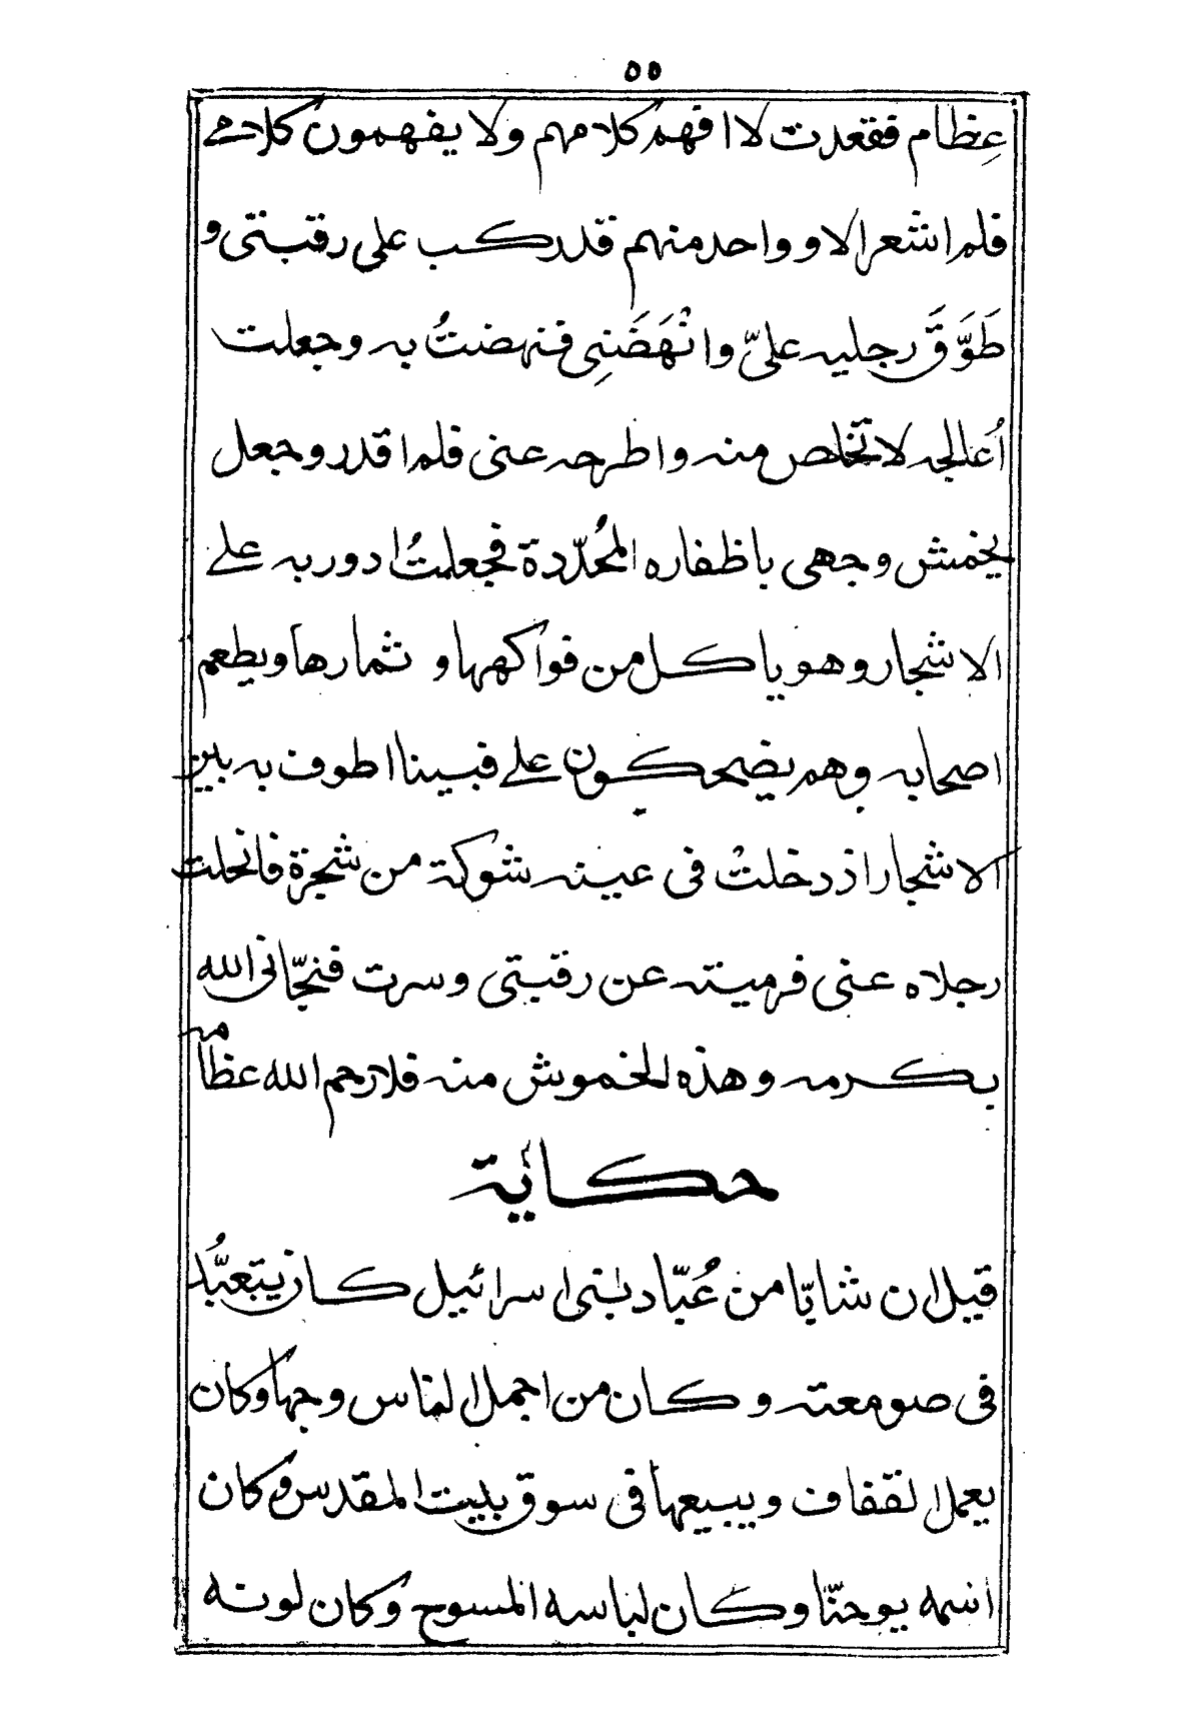 ٥٥
عِظام فقعدت لا افهم كلامهم ولا يفهمون كلامي
فلم اشعر الا و واحد منهم قد ركب على رقبتى و
طَوَّقَ رجليه علىّ وانْهَضَنِى فنهضتُ به وجعلت
أعالجه لاتخلص منه واطرحه عنى فلم اقدر وجعل
يخمش وجهى باظفاره المحُدّدة فجعلتُ ادور به على
الاشجار وهو ياكل من فواكهها و ثمارها ويطعم
اصحابه وهم يضحكون على فبينا اطوف به بين
الاشجار اذ دخلتْ فى عينه شوكة من شجرة فانحلت
رجلاه عنى فرميته عن رقبتى وسرت فنجّانى الله
بكرمه وهذه الخموش منه فلا رحم الله عظامه
حكاية
قيل ان شابّا من عُبّاد بنى اسرائيل كان يتعبُّد
فى صومعته وكان من اجمل الناس وجهاً وكان
يعمل القفاف ويبيعها فى سوق بيت المقدس وكان
اسمه يوحنّا وكان لباسه المسوح وكان لونه